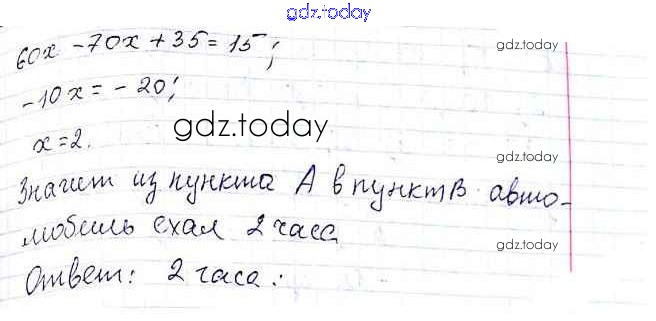 gdz.today
60x - 70x + 35 = 15;
gdz.today
-10x = -20;
x = 2.
gdz.today
gdz.today
Значит из пункта A в пункт B авто-
мобиль ехал 2 часа
gdz.today
Ответ: 2 часа.
gdz.today